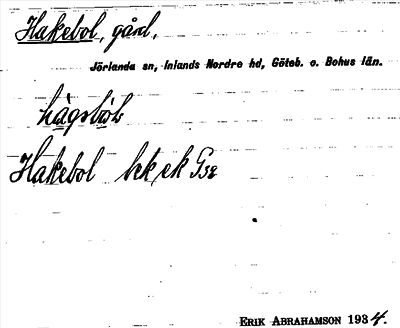 Hakebol, gård,
Jörlanda sn, Inlands Nordre hd, Göteb. o. Bohus län.
hàgsböḷ
Hakebol hk, ek G32
ERIK ABRAHAMSON 1934.